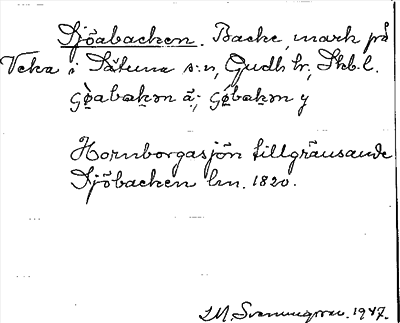 Sjöabacken. Backe, mark på
Veka i Sätuna s:n, Gudh. hr, Skb. l.
Hornborgasjön tillgränsande
Sjöbacken lm. 1820.
I.M. Svanungson. 1947.